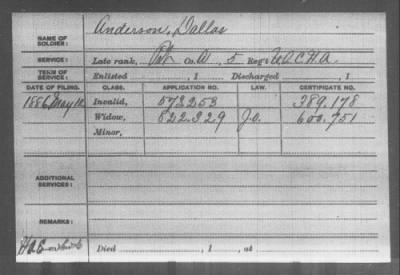 NAME OF SOLDIER: Anderson, Dallas
SERVICE: Late rank, Pvt Co. A, 5 Reg't U.S.C.H.A.
TERM OF SERVICE: Enlisted , 1 Discharged , 1
DATE OF FILING. CLASS. APPLICATION NO. LAW. CERTIFICATE NO.
1886 May Invalid, 573253 389.178
Widow, 822.329 600.751
Minor,
ADDITIONAL SERVICES:
REMARKS:
Died , 1 , at